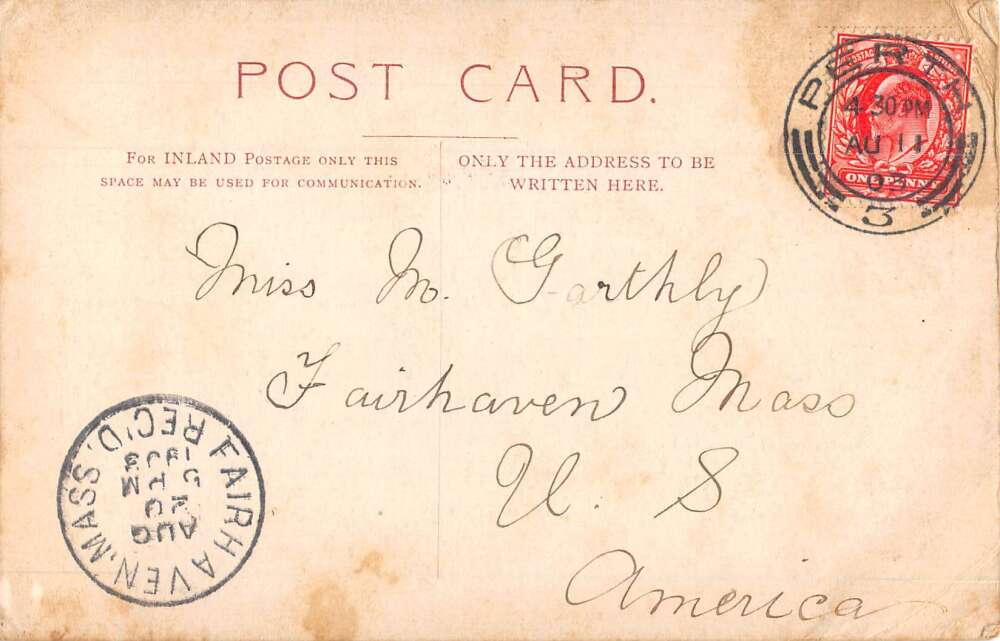 POST CARD.
FOR INLAND POSTAGE ONLY THIS
SPACE MAY BE USED FOR COMMUNICATION.
ONLY THE ADDRESS TO BE
WRITTEN HERE.
PERTH
4.30 PM
AU 11
03
3
ONE PENNY
Miss M. Garthly
Fairhaven Mass
U. S
America
FAIRHAVEN, MASS.
REC'D.
AUG
20
PM